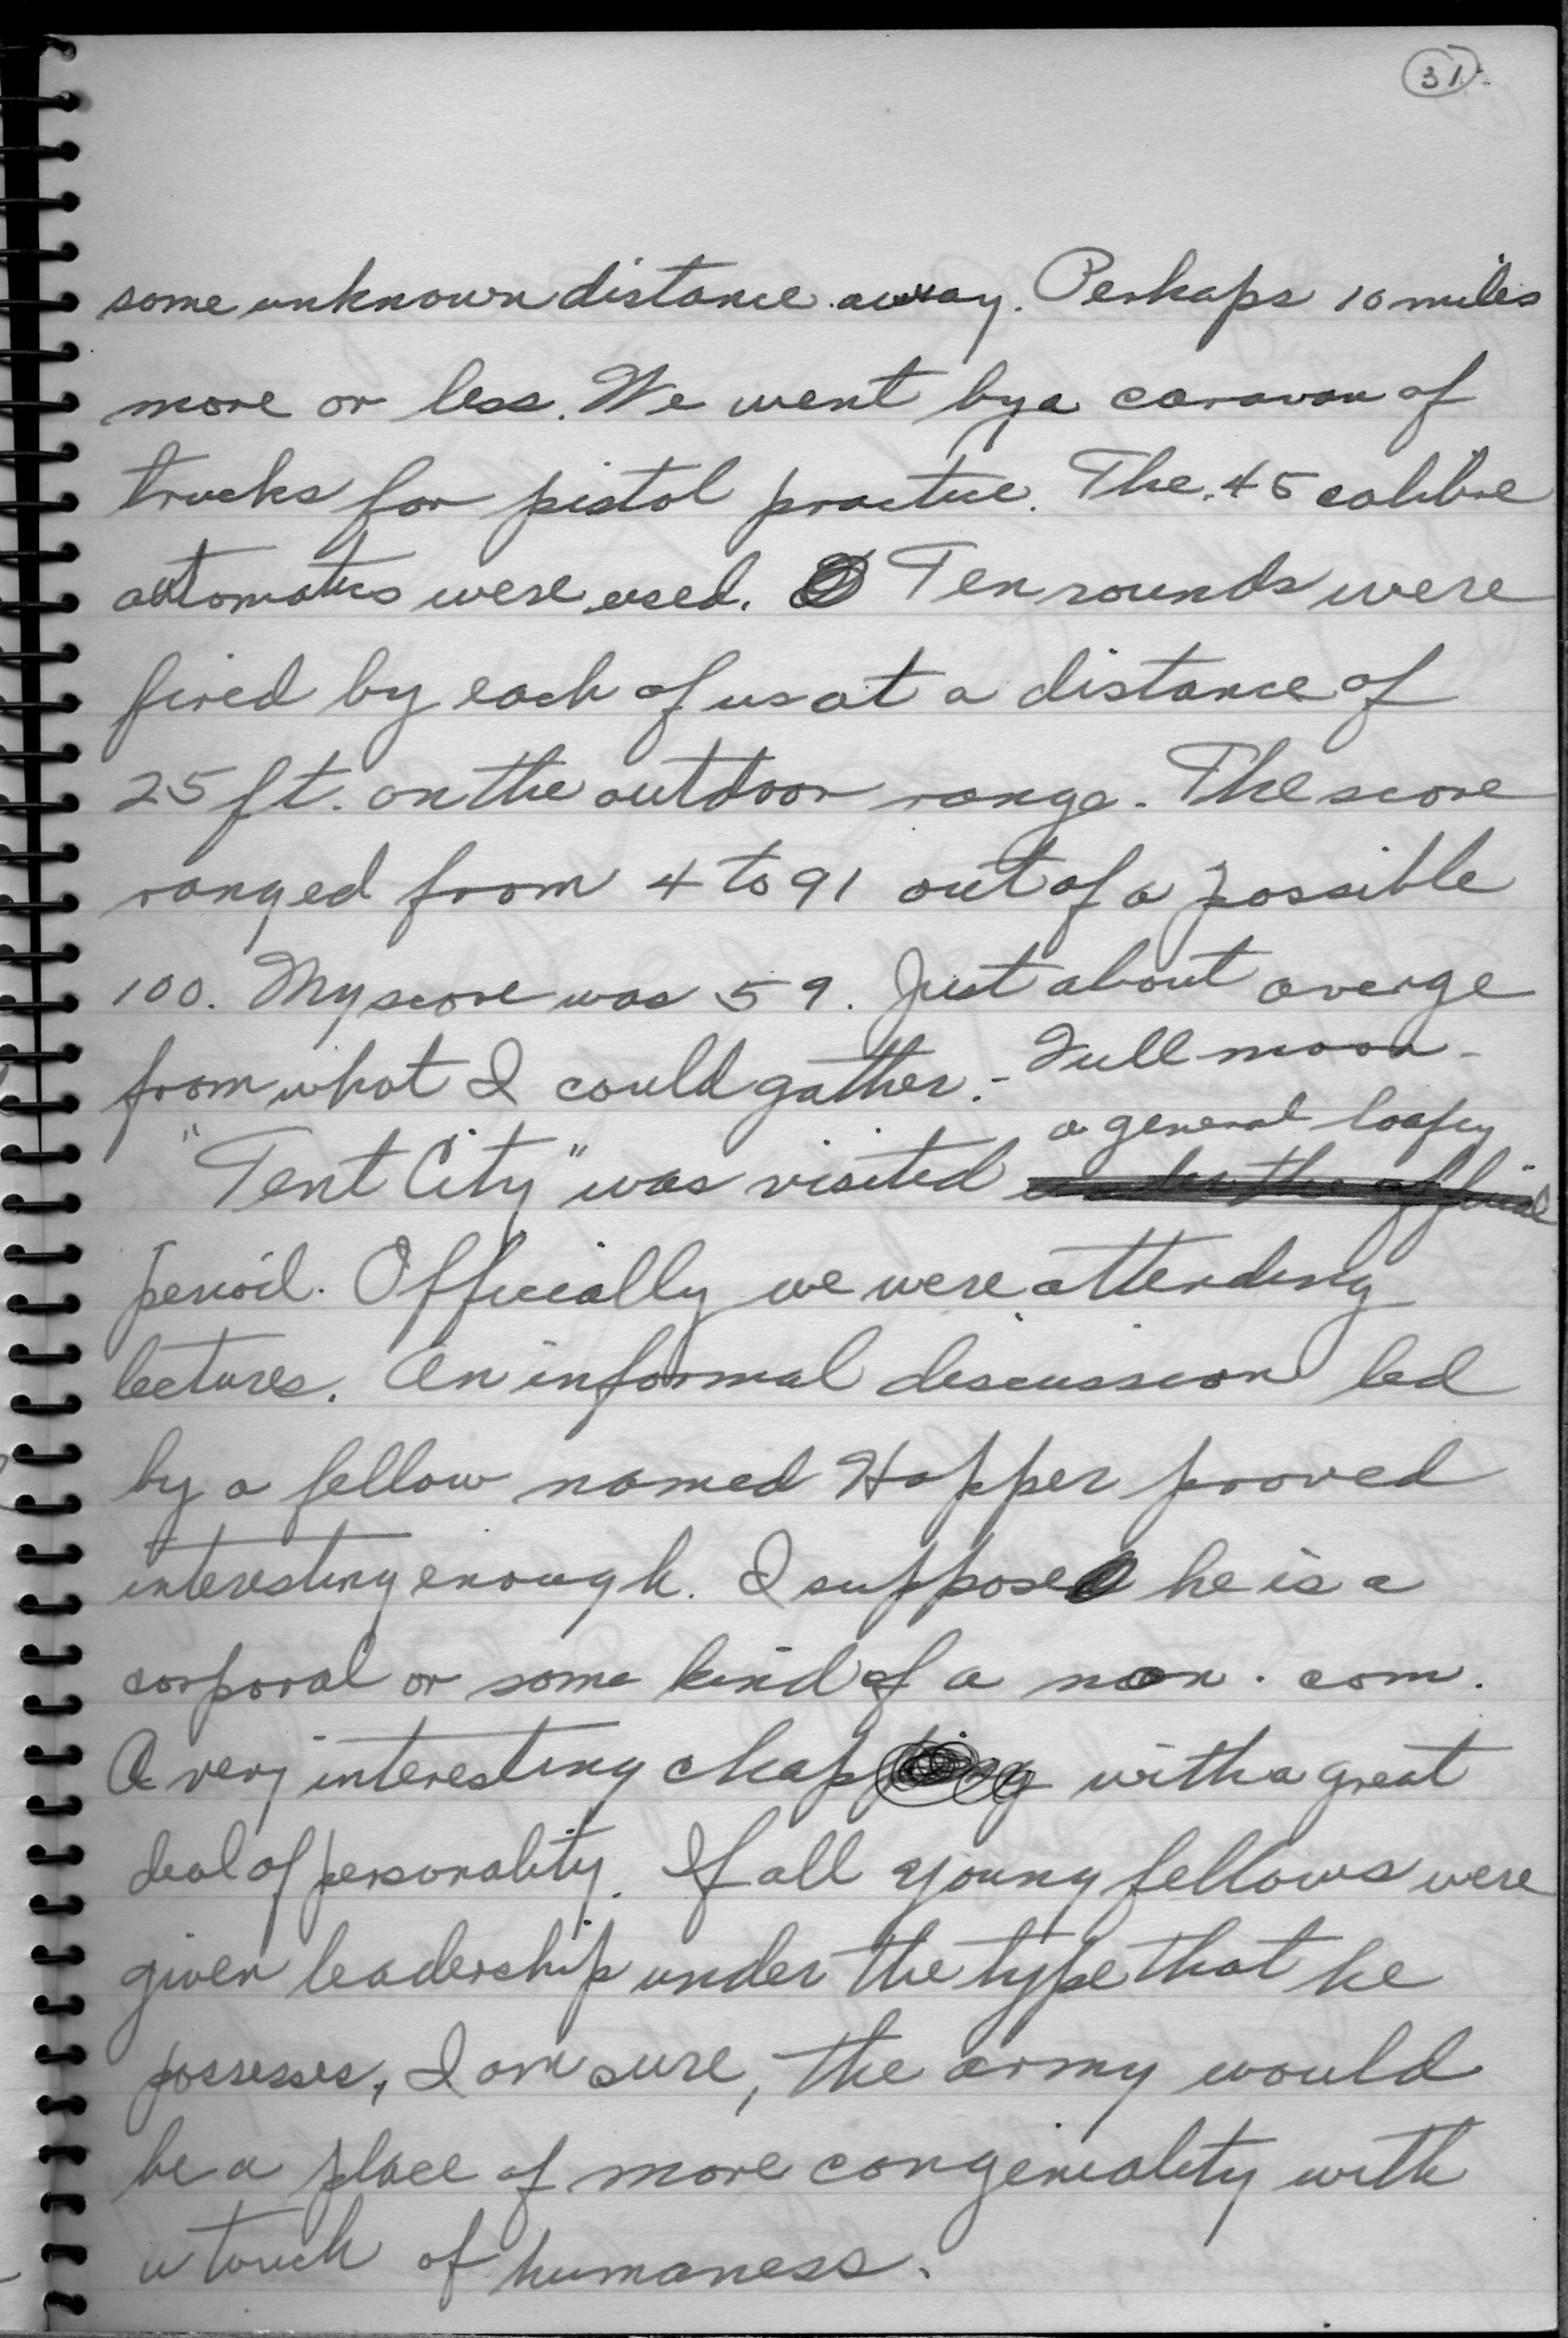 31
some unknown distance away. Perhaps 10 miles
more or less. We went by a caravan of
trucks for pistol practice. The .45 calibre
automatics were used. Ten rounds were
fired by each of us at a distance of
25 ft. on the outdoor range. The score
ranged from 4 to 91 out of a possible
100. My score was 59. Just about averge
from what I could gather. - Full moon -
a general loafing
"Tent City" was visited under the official
period. Officially we were attending
lectures. An informal discussion led
by a fellow named Hopper proved
interesting enough. I suppose he is a
corporal or some kind of a non. com.
A very interesting chap with a great
deal of personality. If all young fellows were
given leadership under the type that he
possesses, I am sure, the army would
be a place of more congeniality with
a touch of humaness.